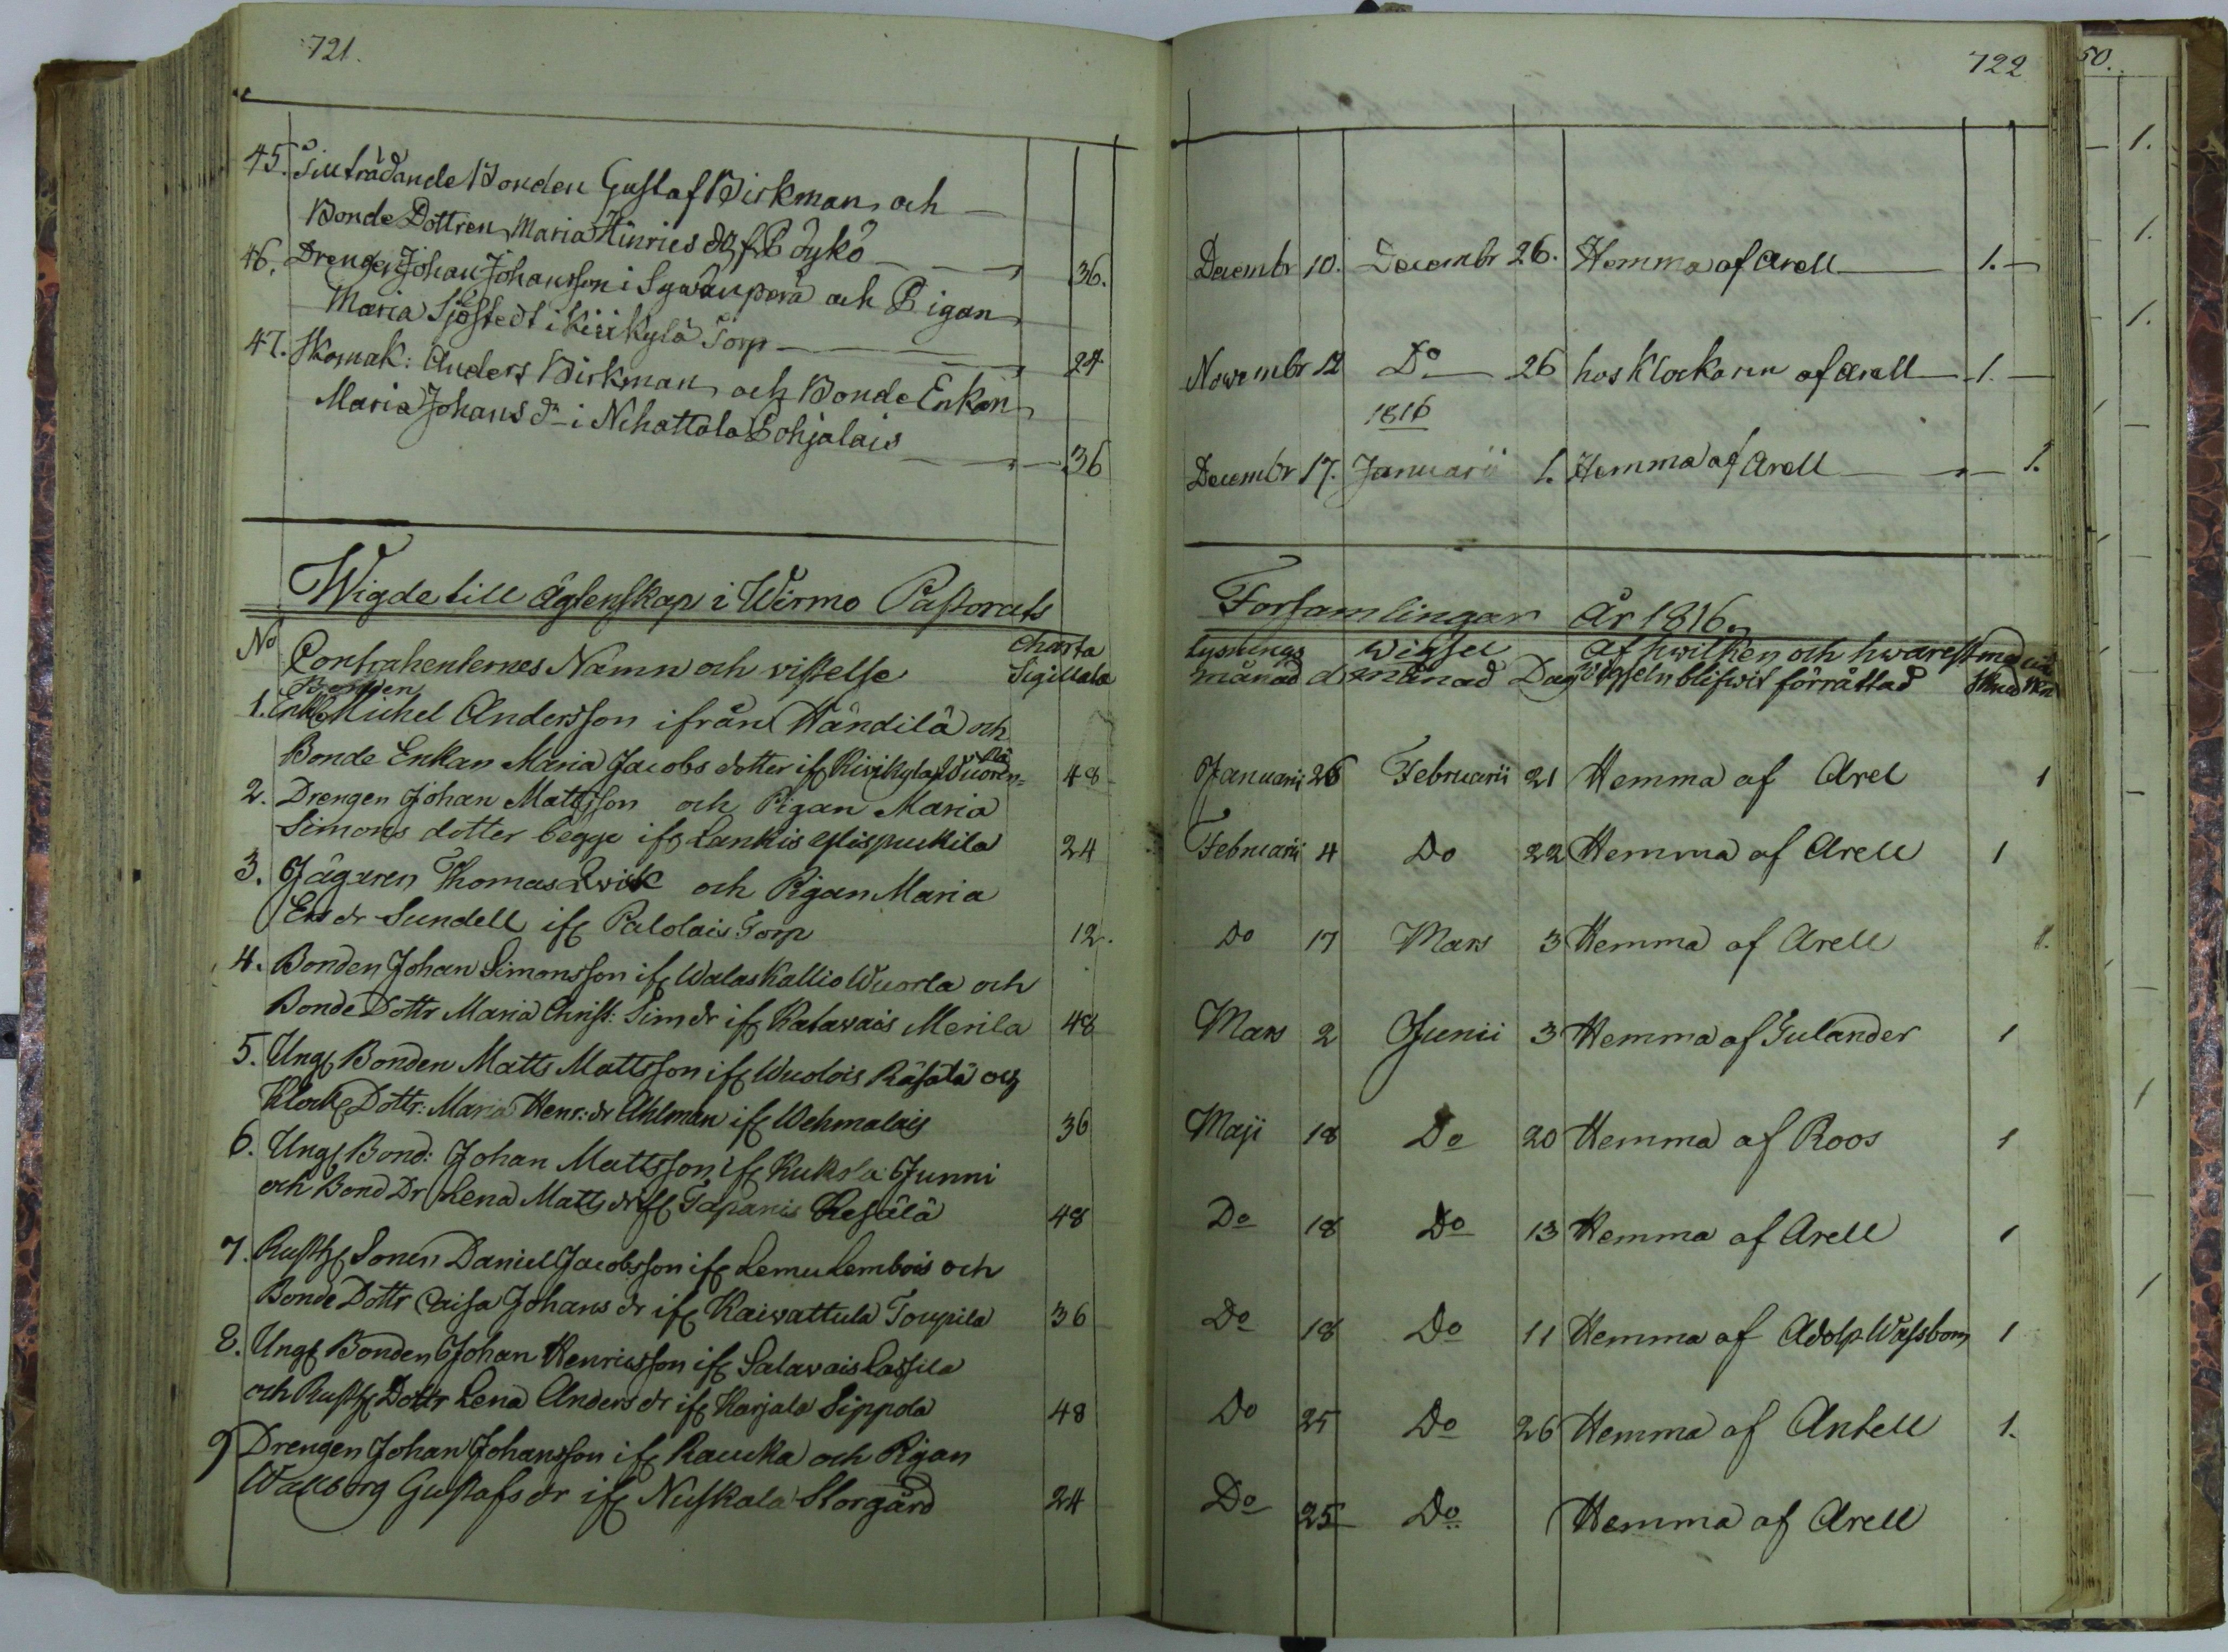 721.
45. Tilträdande Bonden Gustaf Birkman och
Bonde Dottren Maria Hinrics dr fr Böykö 36.
46. Drengen Johan Johansson i Sywänperä och Pigan
Maria Sjöstedt i Kirikylä Torp 24
47. Skomak: Anders Birkman och Bonde Enkan
Maria Johans dr i Nihattala Pohjalais 36
Wigde till Ägtenskap i Wirmo Pastorats
No Contrahenternes Namn och vistelse Charta Sigillata
Bonden
1. Enkl Michel Andersson ifrån Händilä och
Bonde Enkan Maria Jacobs dotter if Kirikyla Wuoren= pää 48
2. Drengen Johan Mattsson och Pigan Maria
Simons dotter begge if Lankis Ylispuckila 24
3. Jägaren Thomas Qvick och Pigan Maria
Ers dr Sundell if Palolais Torp 12.
4. Bonden Johan Simonsson if Walaskallio Wuorla och
Bonde Dottr Maria Christ: Sim dr if Katawais Merila 48
5. Ungf Bonden Matts Mattsson if Wuolois Räsälä och
Klock Dottr: Maria Henr: dr Ahlman if Wehmalais 36
6. Ungf Bond: Johan Mattsson if Kukola Junni
och Bond Dr Lena Matts dr if Tapanis Resälä 48
7. Rusth Sonen Daniel Jacobsson if Lemu Lembois och
Bonde Dottr Caisa Johans dr if Kaiwattula Toupila 36
8. Ungf Bonden Johan Henricsson if Salawais Lassila
och Rusth Dottr Lena Anders dr if Karjala Sippola 48
9 Drengen Johan Johansson if Raucka och Pigan
Wallborg Gustafs dr if Nuskala Storgård 24
722
Decembr 10. Decembr 26. Hemma af Arell 1.
Novembr 12 Do 26 hos Klockaren af Arell 1.
1816
Decembr 17. Januarii 1. Hemma af Arell 1.
Forsamlingar År 1816.
Lysnings Wigsel Af hwilken och hwarest
månad d månad Dag Wigseln blifwit förrättad
Januarii 26 Februarii 21 Hemma af Arel 1
Februarii 4 Do 22 Hemma af Arell 1
Do 17 Mars 3 Hemma af Arell 1.
Mars 2 Junii 3 Hemma af Gulander 1
Maji 18 Do 20 Hemma af Roos 1
Do 18 Do 13 Hemma af Arell 1
Do 18 Do 11 Hemma af Adolp Wassbom 1
Do 25 Do 26 Hemma af Antell 1.
Do 25 Do Hemma af Arell
50.
1.
1.
1.
1
1